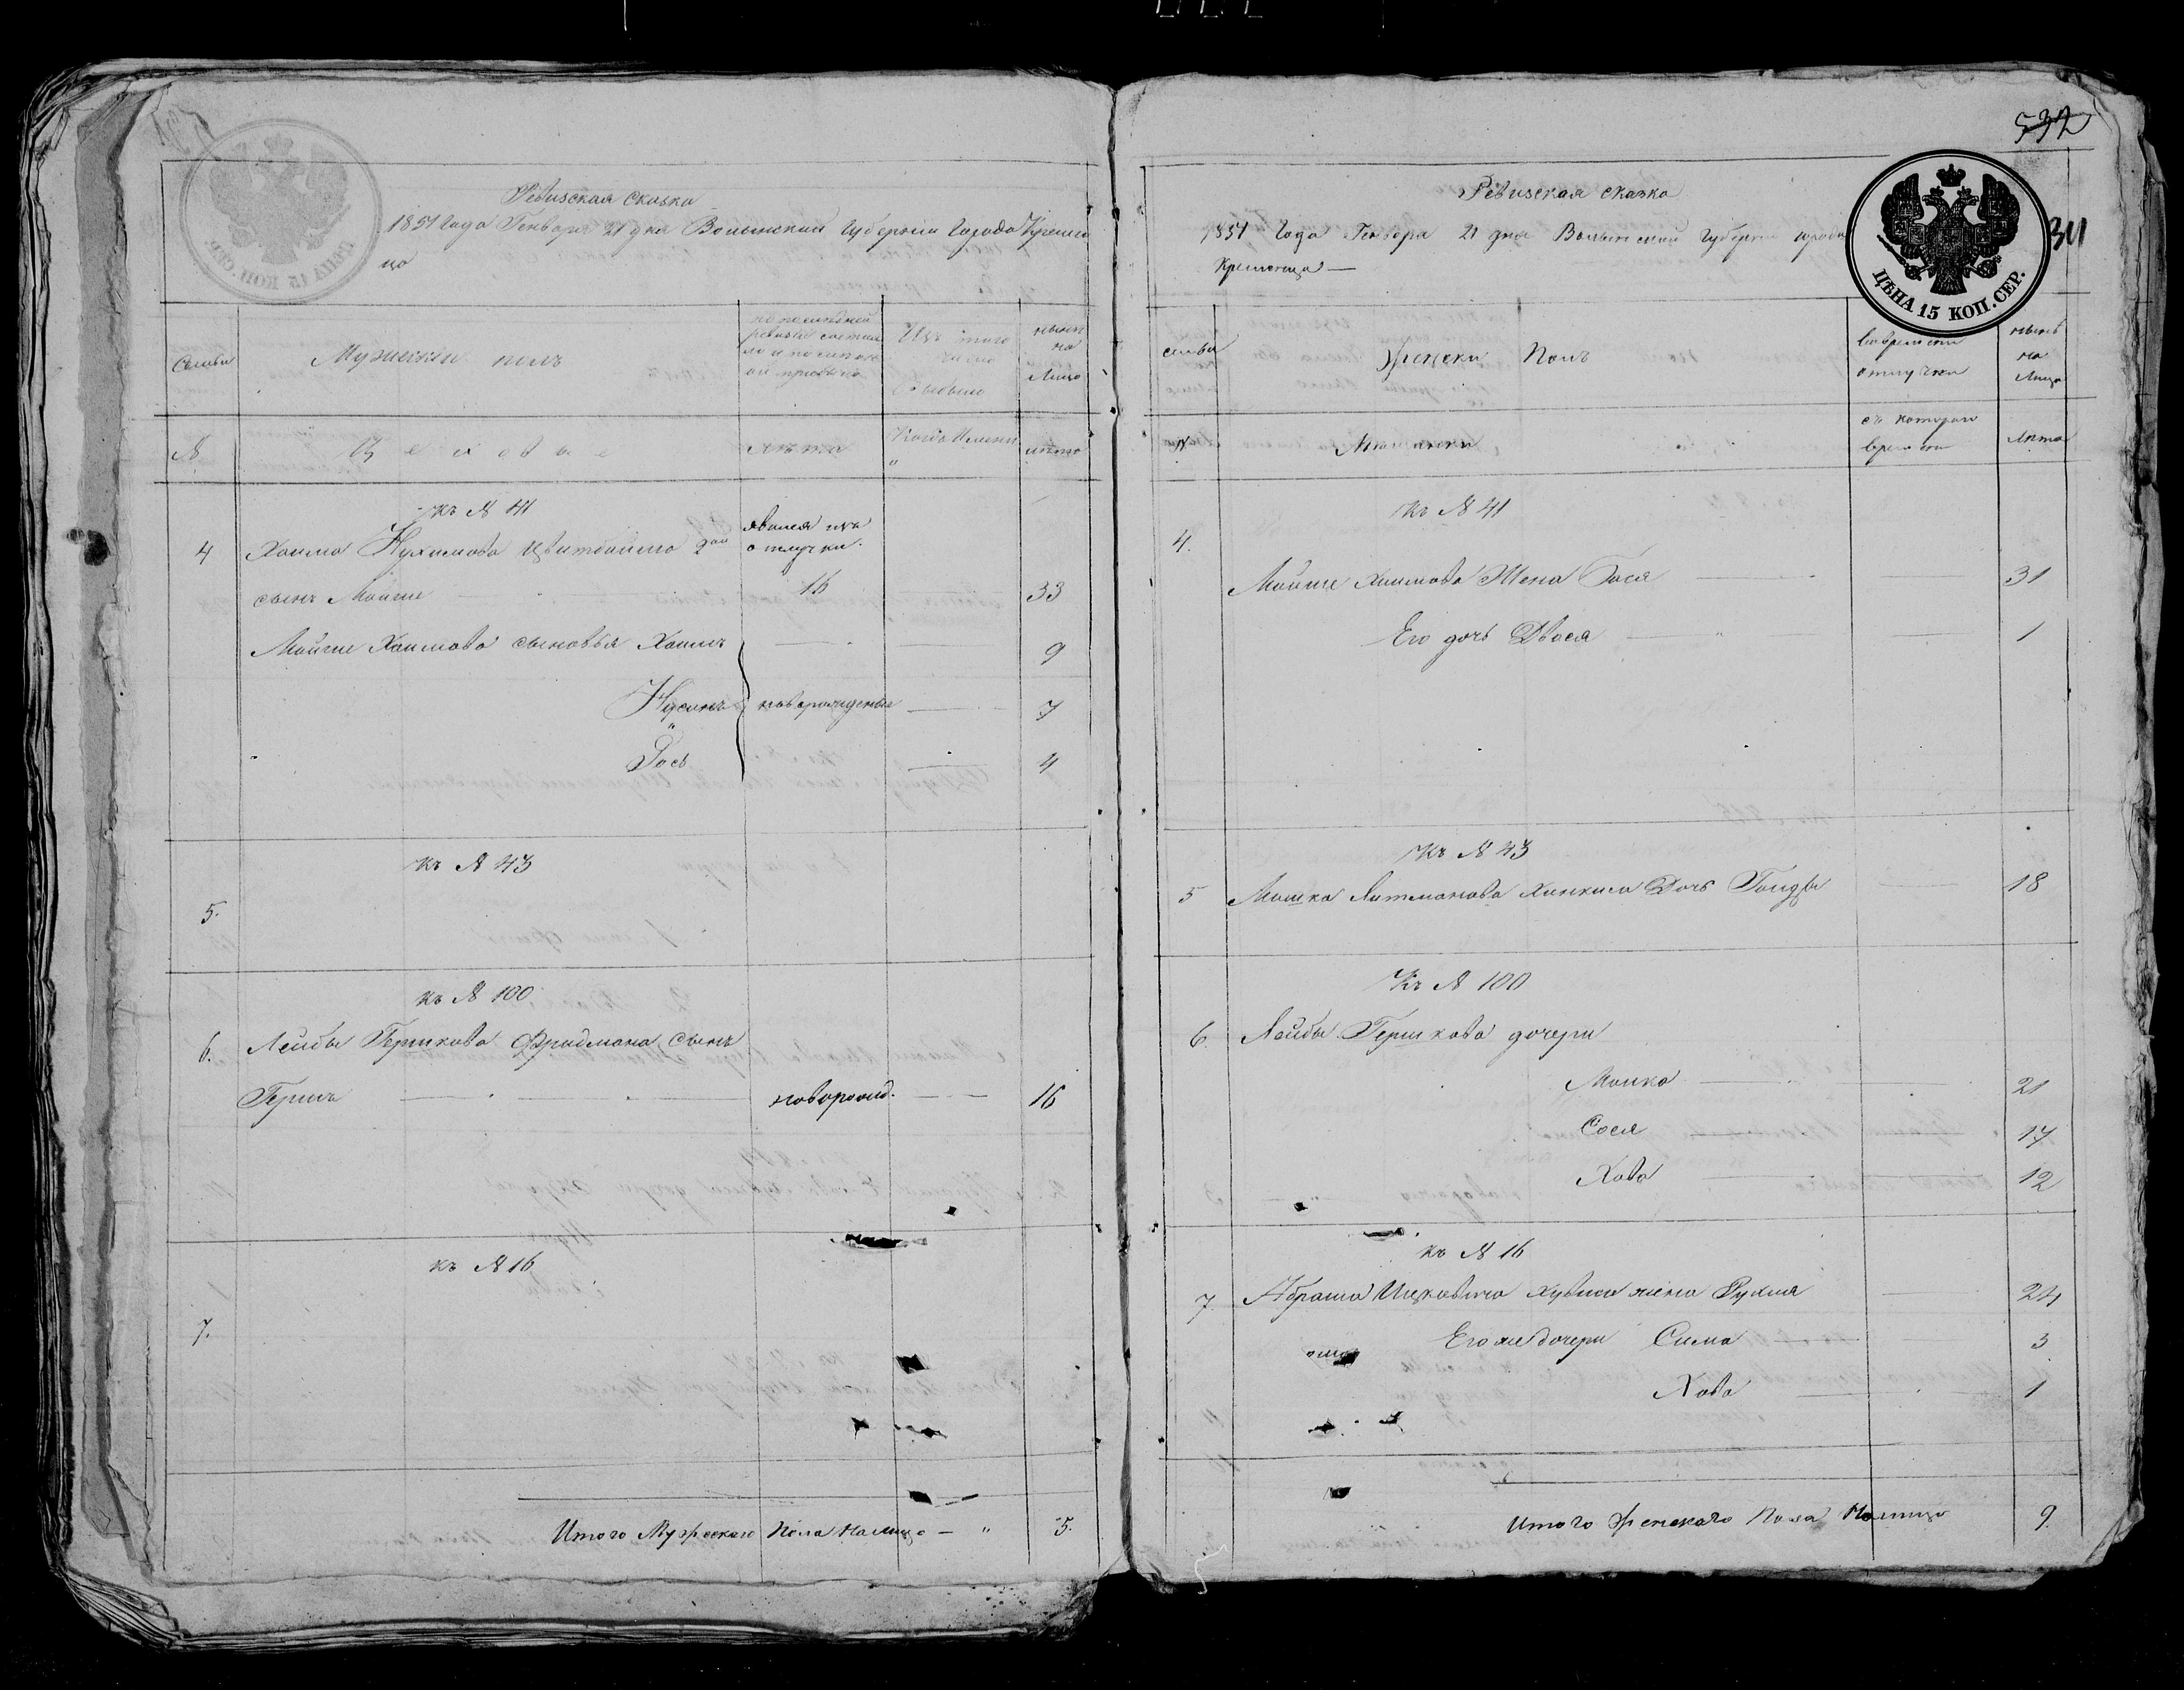 Ревизская сказка
1851 года Генваря 21 дня Волынский губернии города Кременца
Семьи
Мужеский полъ
по последней ревизии состояло и после оной прибыло
Изъ того числа выбыло
ныне на лицо
№
лета
Когда Именно
лета
къ № 41
4 Хаима Нухимова Цвитбаима 2ой явился изъ отлучки.
сынъ Мойше 16 33
Мойше Хаимова сыновья Хаимъ 9
Нусинъ новорожденые 7
Іось 4
къ № 43
5.
къ № 100
6. Лейбы Гершкова Фридмана сынъ
Гершъ новорожд. 16
къ № 16
7.
Итого Мужескаго Пола Налицо — " 5.
532
Ревизская сказка
1851 Года Генваря 21 дня Волынской губернии города
Кременца —
ЦѢНА 15 КОП. СЕР.
семьи
Женски Полъ
вовременной отлучки
ныне на Лицо
№
съ котораго времени
Лета
Къ № 41
4.
Мойше Хаимова Жена Бася 31
Его дочь Двося 1
Къ № 43
5 Мошка Литманова Хинкиса Дочь Гольды 18
Къ № 100
6. Лейбы Гершкова дочери
Малка 21
Сося 17
Хава 12
къ № 16
7 Абрама Ицковича жена Рухля 24
Его же дочери Сима 3
Хава 1
Итого Женскаго Пола Налицо 9.